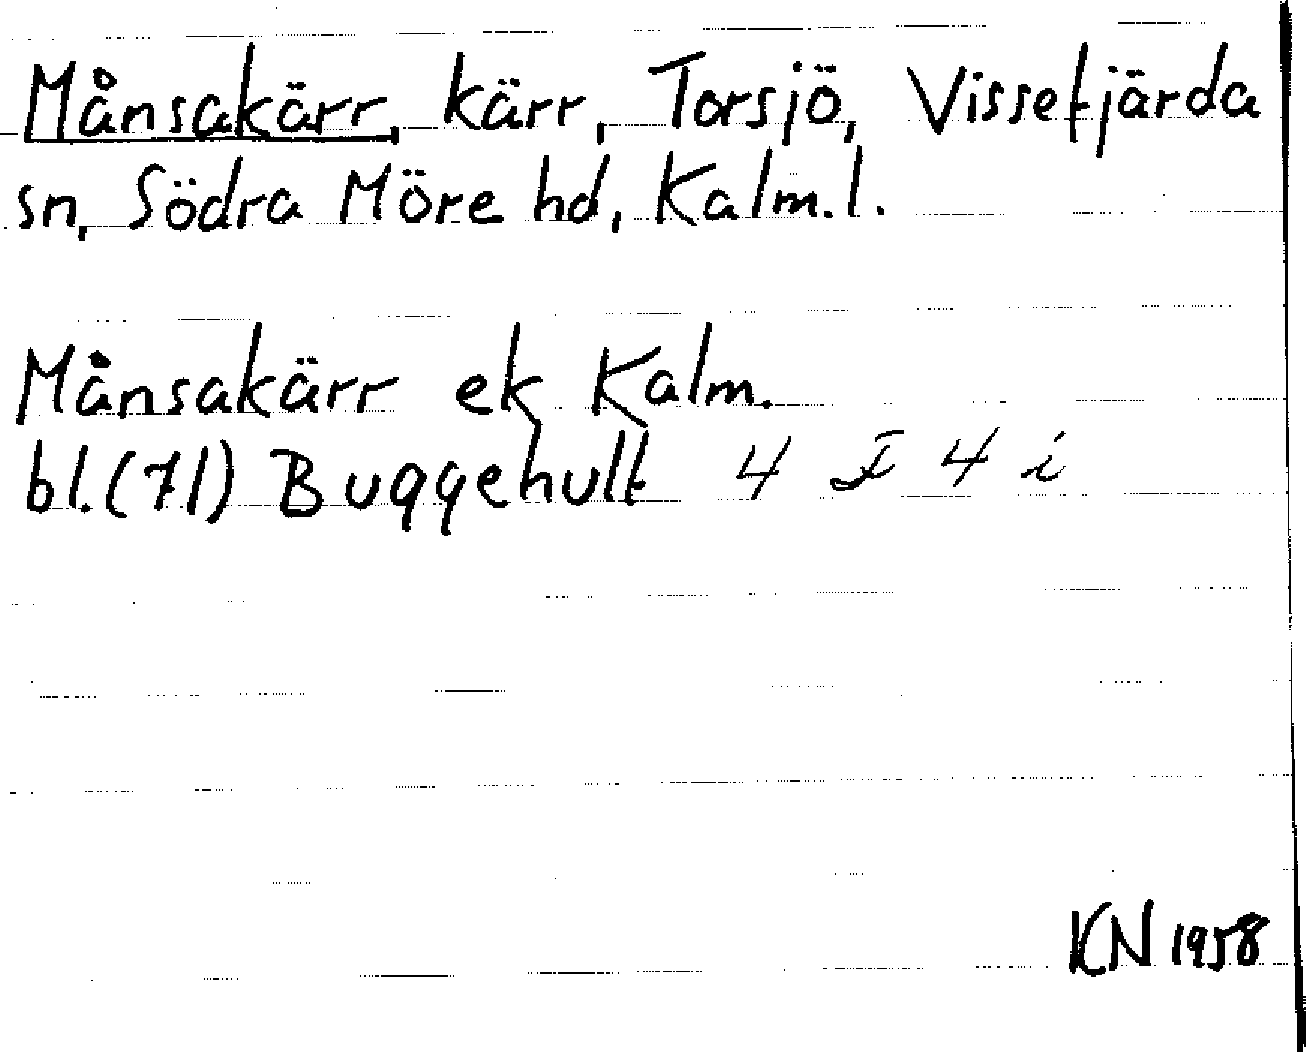 Månsakärr, kärr, Torsjö, Vissefjärda
sn, Södra Möre hd, Kalm.l.
Månsakärr ek Kalm.
bl.(71) Buggehult 4 F 4 i
KN 1958